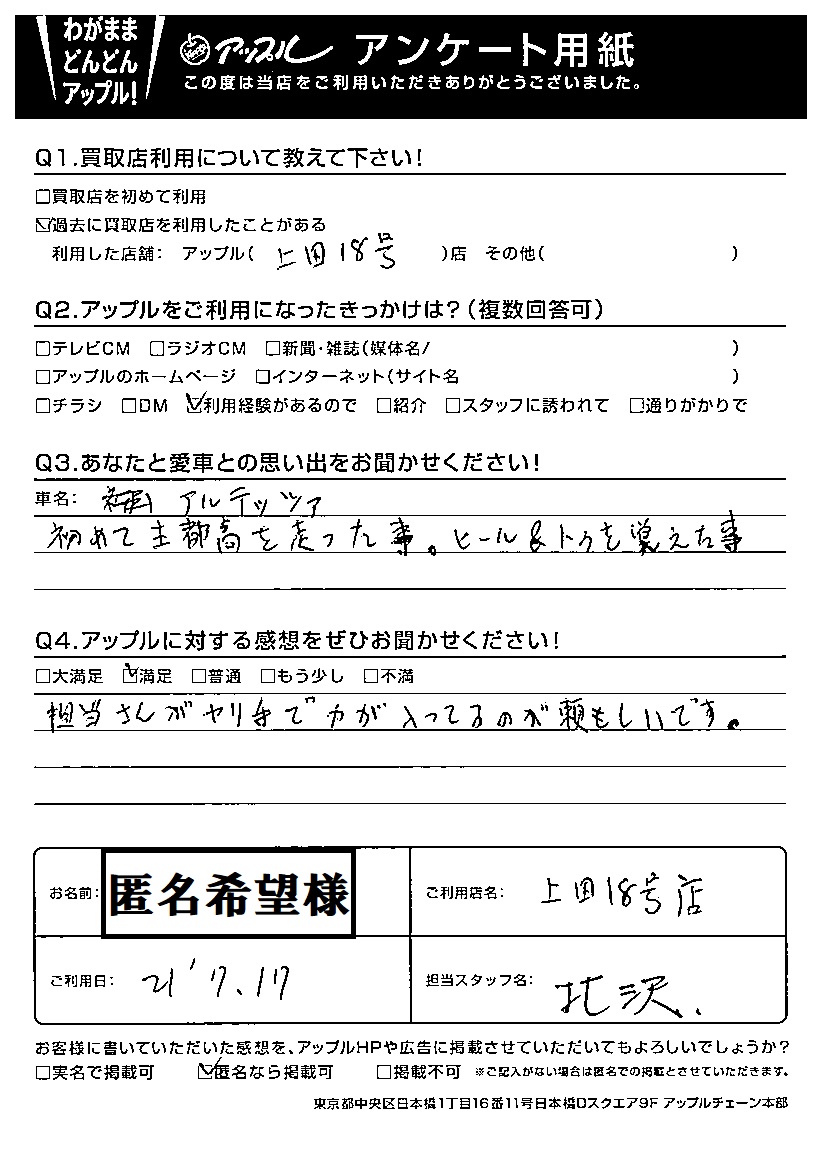 わがまま
どんどん
アップル!
アップル アンケート用紙
この度は当店をご利用いただきありがとうございました。
Q1.買取店利用について教えて下さい!
□買取店を初めて利用
☑過去に買取店を利用したことがある
利用した店舗: アップル( 上田18号 )店 その他( )
Q2.アップルをご利用になったきっかけは?(複数回答可)
□テレビCM □ラジオCM □新聞・雑誌(媒体名/ )
□アップルのホームページ □インターネット(サイト名 )
□チラシ □DM ☑利用経験があるので □紹介 □スタッフに誘われて □通りがかりで
Q3.あなたと愛車との思い出をお聞かせください!
車名: アルテッツァ
初めて主都高を走った事。ヒール&トゥを覚えた事
Q4.アップルに対する感想をぜひお聞かせください!
□大満足 ☑満足 □普通 □もう少し □不満
担当さんがヤリ手で力が入ってるのが頼もしいです。
お名前: 匿名希望様
ご利用店名: 上田18号店
ご利用日: 21'7.17
担当スタッフ名: 北沢
お客様に書いていただいた感想を、アップルHPや広告に掲載させていただいてもよろしいでしょうか?
□実名で掲載可 ☑匿名なら掲載可 □掲載不可 ※ご記入がない場合は匿名での掲載とさせていただきます。
東京都中央区日本橋1丁目16番11号日本橋Dスクエア9F アップルチェーン本部